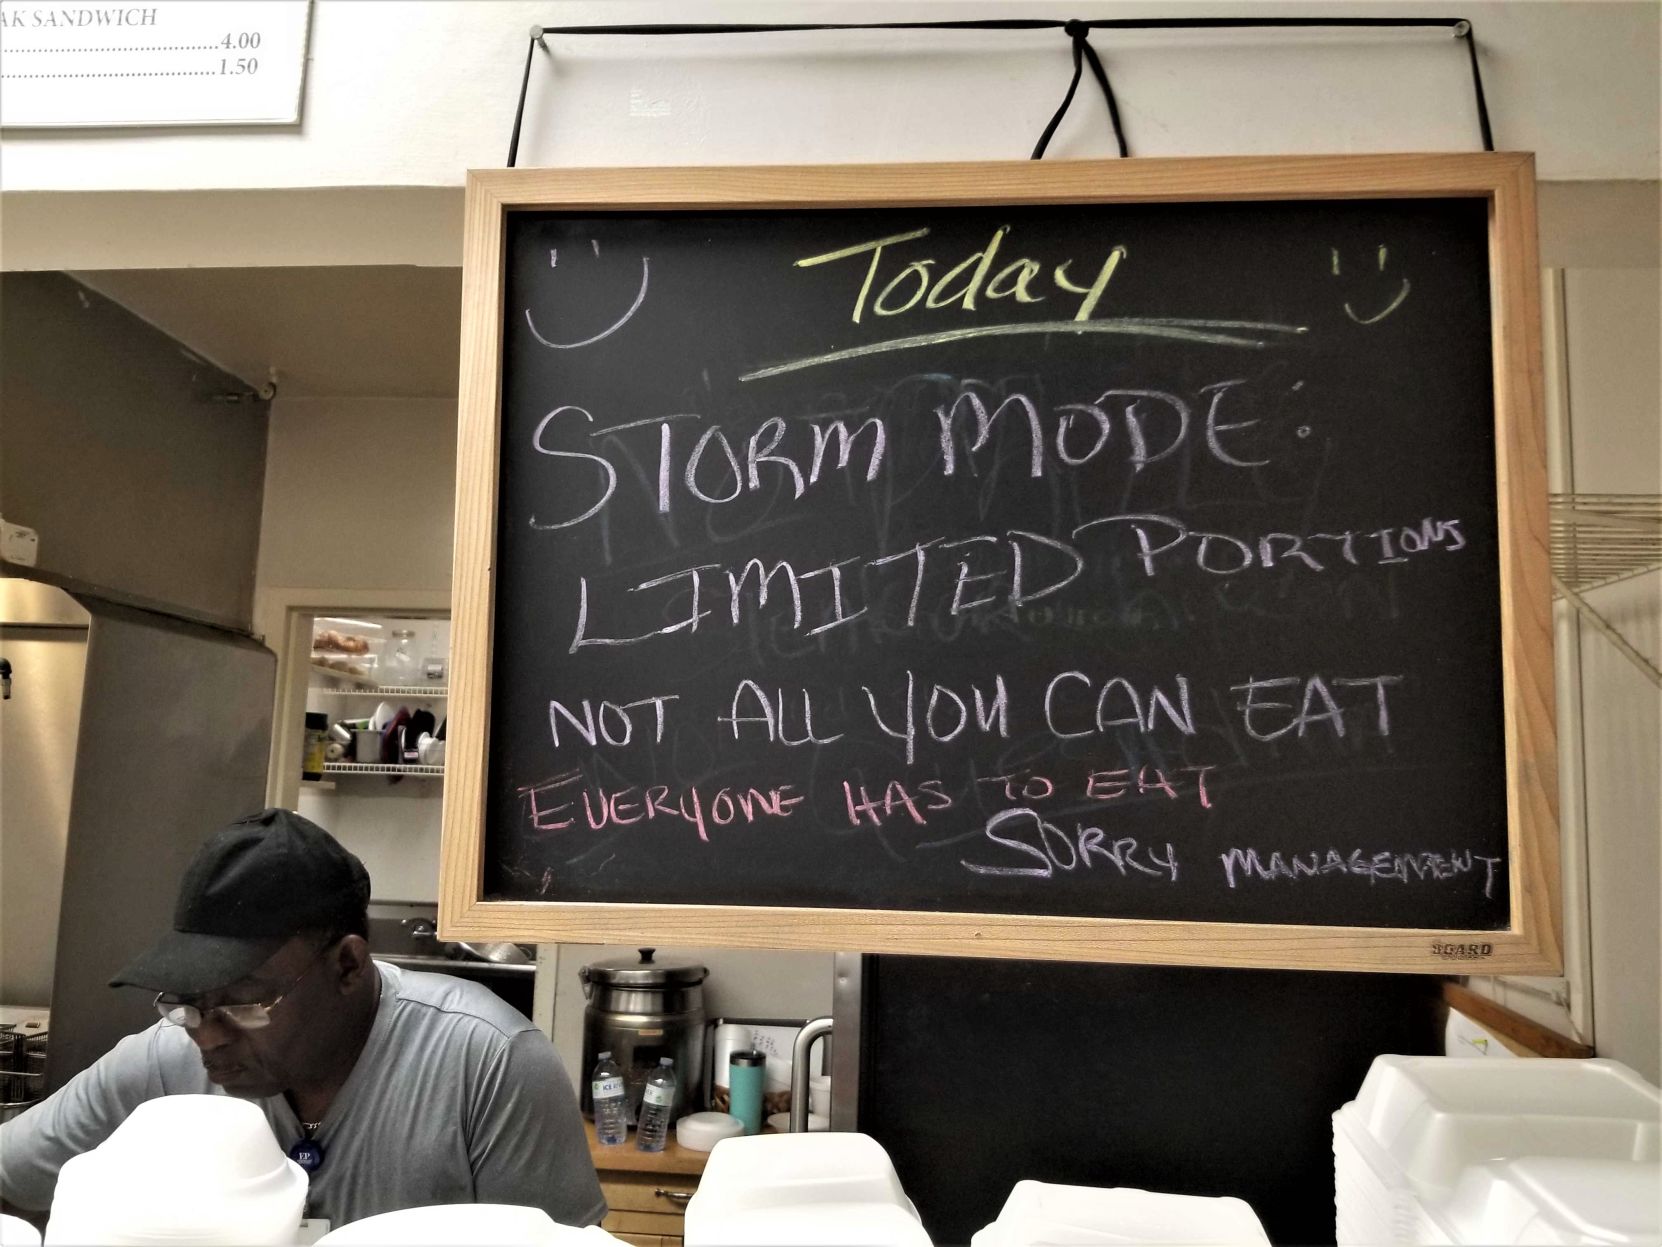 AK SANDWICH
4.00
1.50
Today
STORM MODE:
LIMITED PORTIONS
NOT ALL YOU CAN EAT
EVERYONE HAS TO EAT
SORRY MANAGEMENT
BOARD
EP